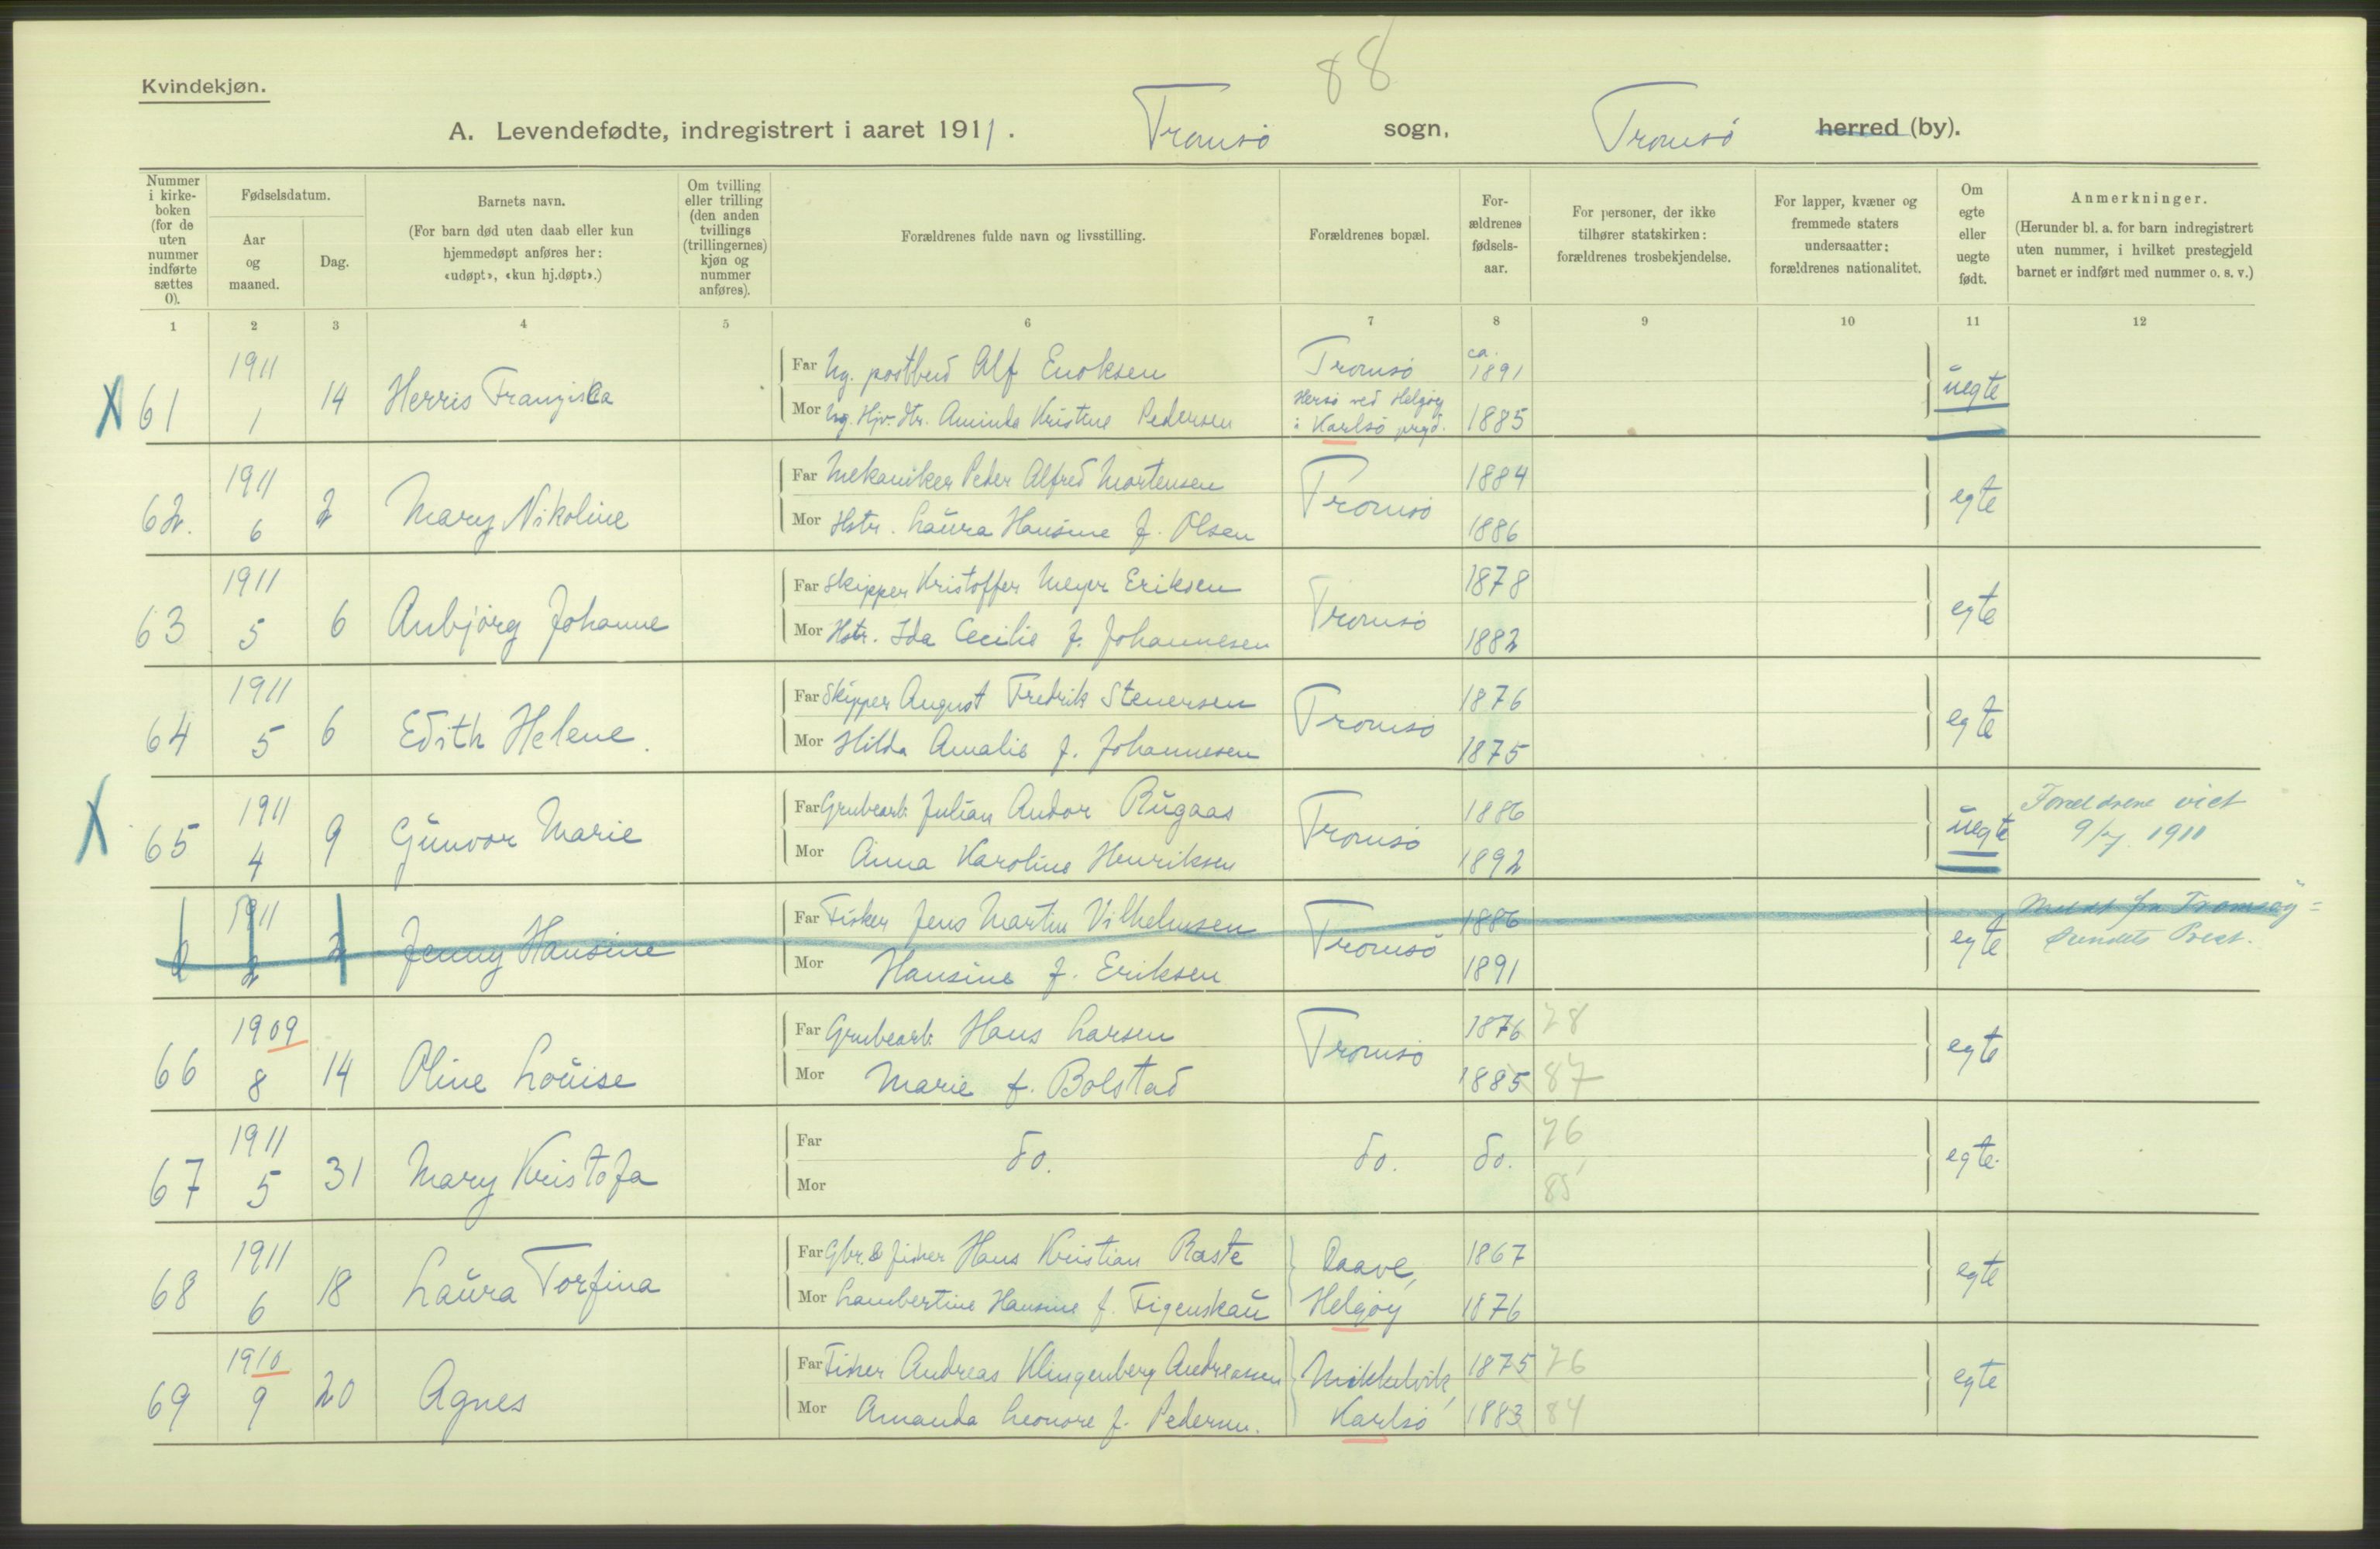 88
Kvindekjøn.
A. Levendefødte, indregistrert i aaret 1911. Tromsö sogn, Tromsö herred (by).
Nummer i kirke-boken (for de uten nummer indførte sættes 0).
Fødselsdatum.
Aar og maaned.
Dag.
Barnets navn.
(For barn død uten daab eller kun hjemmedøpt anføres her: «udøpt», «kun hj.døpt».)
Om tvilling eller trilling (den anden tvillings (trillingernes) kjøn og nummer anføres).
Forældrenes fulde navn og livsstilling.
Forældrenes bopæl.
For-ældrenes fødsels-aar.
For personer, der ikke tilhører statskirken: forældrenes trosbekjendelse.
For lapper, kvæner og fremmede staters undersaatter: forældrenes nationalitet.
Om egte eller uegte født.
Anmerkninger.
(Herunder bl. a. for barn indregistrert uten nummer, i hvilket prestegjeld barnet er indført med nummer o. s. v.)
1 2 3 4 5 6 7 8 9 10 11 12
X 61 1911 1 14 Herris Franziska
Far Ug. postbud Alf Enoksen Tromsö ca. 1891
Mor Ug. Hjv. dtr. Aminda Kristine Pedersen Hersö ved Helgöy i Karlsö prgd. 1885 uegte
62. 1911 6 2 Mary Nikoline
Far Mekaniker Peder Alfred Mortensen Tromsö 1884
Mor Hstr. Laura Hansine f. Olsen 1886 egte
63 1911 5 6 Anbjörg Johanne
Far Skipper Kristoffer Meyer Eriksen Tromsö 1878
Mor Hstr. Ida Cecilie f. Johannesen 1882 egte
64 1911 5 6 Edith Helene.
Far Skipper August Fredrik Stenersen Tromsö 1876
Mor Hilda Amalie f. Johannesen 1875 egte
X 65 1911 4 9 Gunvor Marie
Far Grubearb. Julian Andor Rugaas Tromsö 1886
Mor Anna Karoline Henriksen 1892 uegte
Forældrene viet
9/7 1911
0 1911 2 2 Jenny Hansine
Far Fisker Jens Martin Vilhelmsen Tromsö 1886
Mor Hansine f. Eriksen 1891 egte
fra Tromsöy=
sundets Prest.
66 1909 8 14 Oline Louise
Far Grubearb. Hans Larsen Tromsö 1876 78
Mor Marie f. Bolstad 1885 87 egte
67 1911 5 31 Mary Kristofa
Far do. do. do. 76
Mor 85 egte.
68 1911 6 18 Laura Torfina
Far Gbr. & fisker Hans Kristian Raste Daave, 1867
Mor Lambertine Hansine f. Figenskau Helgöy 1876 egte
69 1910 9 20 Agnes
Far Fisker Andreas Klingenberg Andreasen Mikkelvik, 1875 76
Mor Amanda Leonore f. Pedersen. Karlsö 1883 84 egte